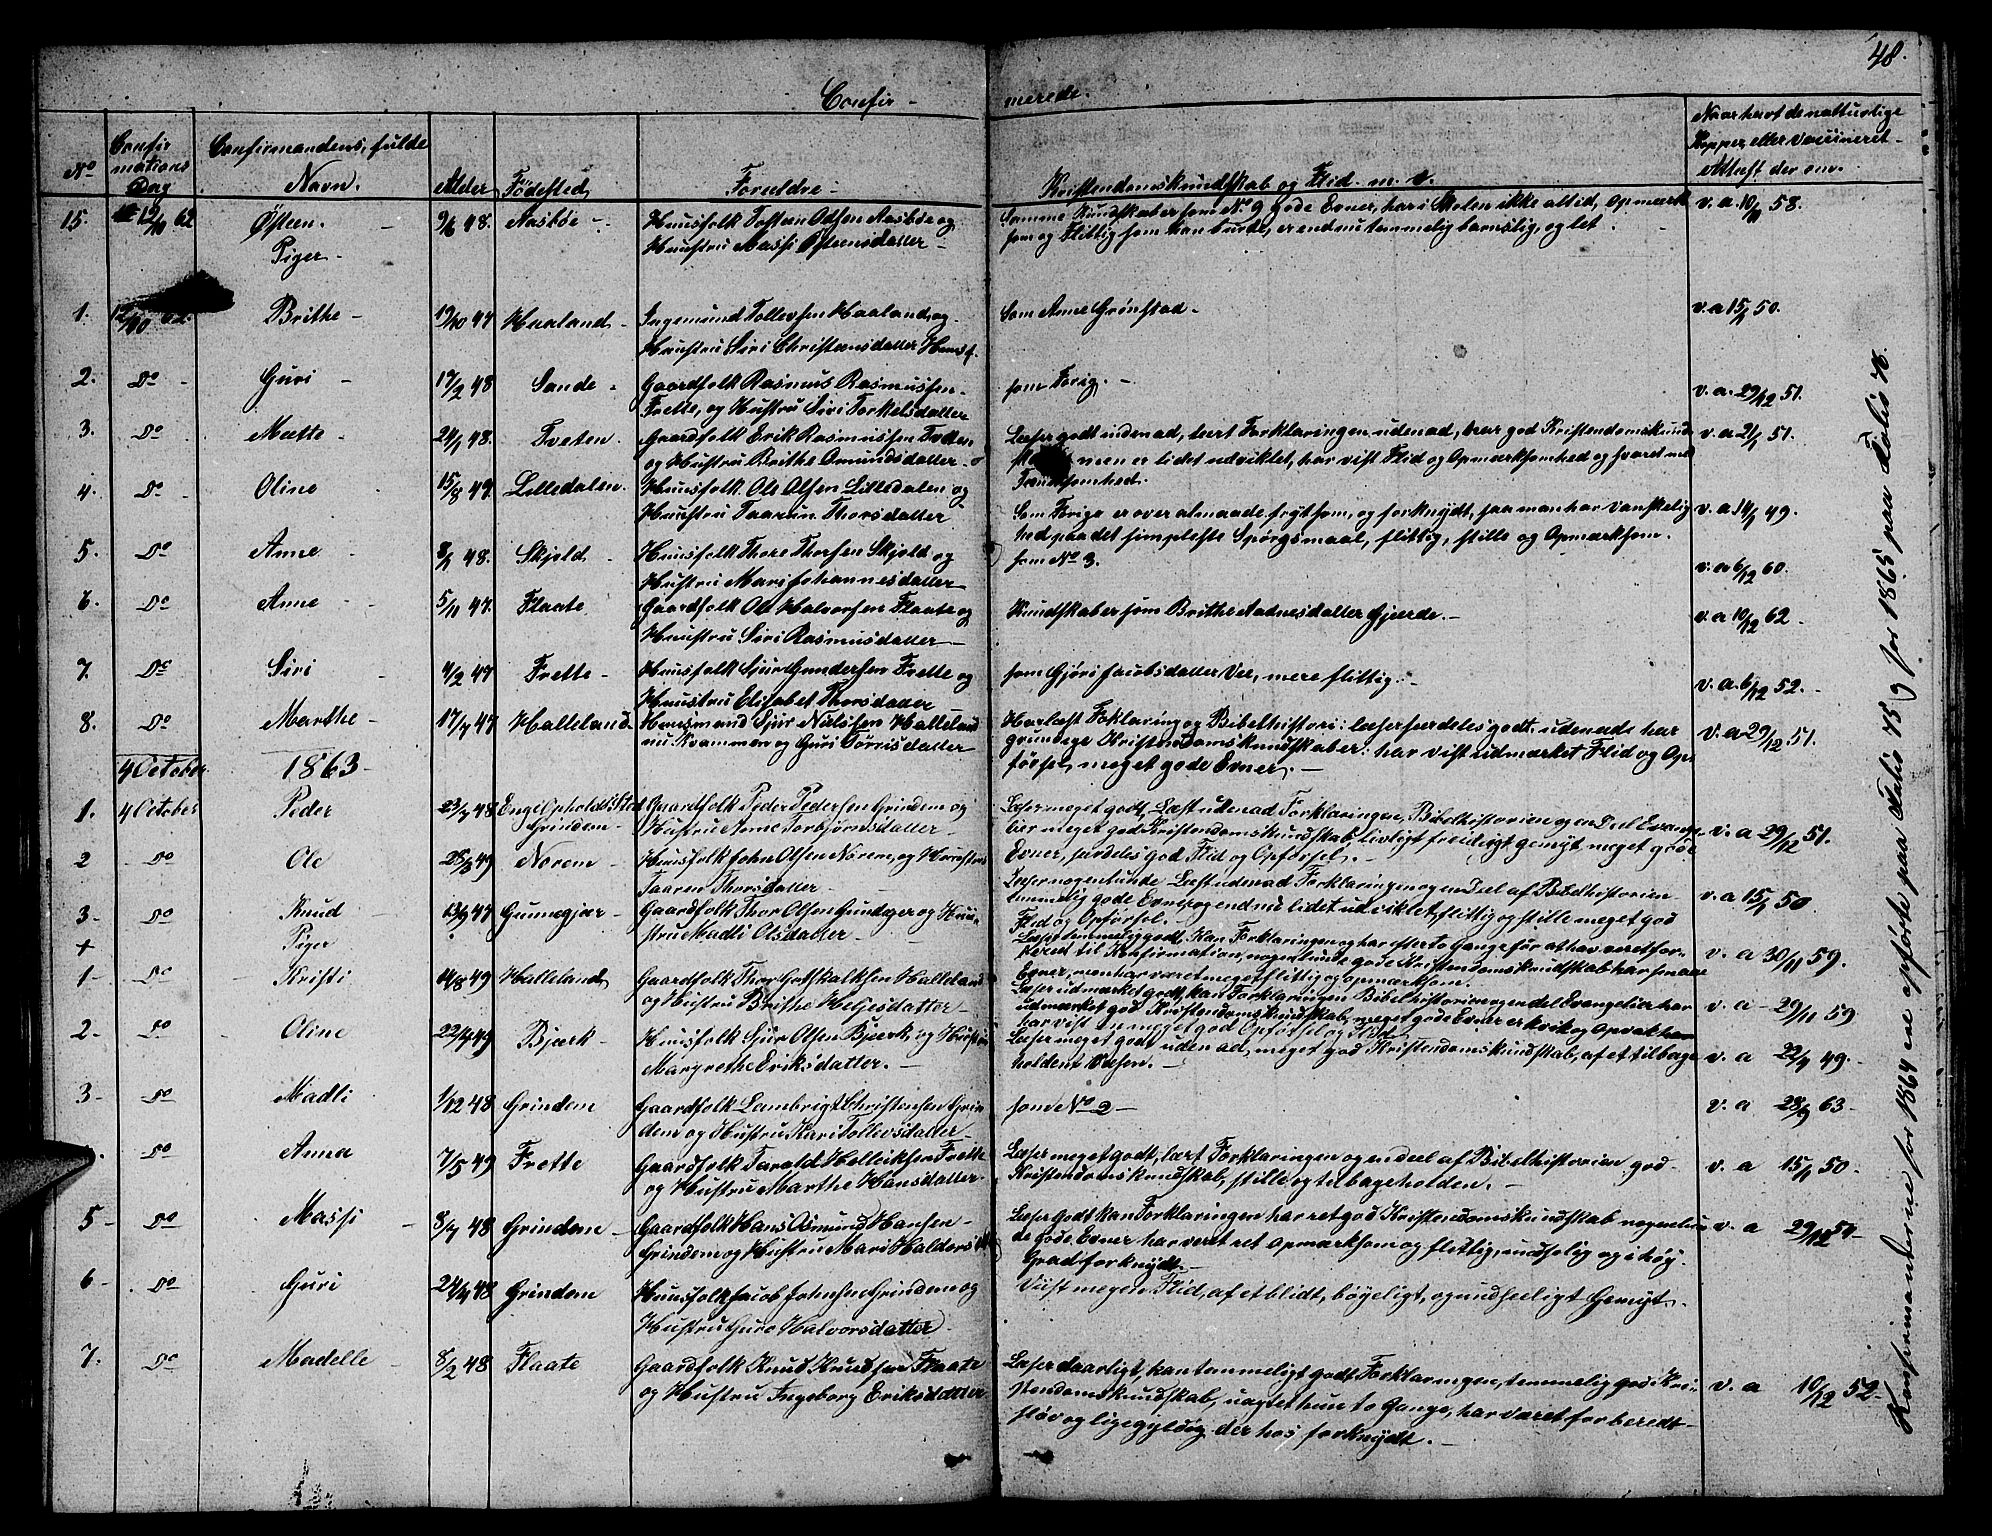 48.
Confir - merede.
No
Confir
mations
Dag
Confirmandens, fulde
Navn.
Alder
Födested
Foreldre -
Kristendomskundskab og Flid. m. v.
Naar havt de natturlige
Kopper, eller Vaccineret -
Attest der om.
15. 12/10 62 Østeen. - 9/6 48. Aasböe - Huusfolk Tosten Odsen Aasböe og
Hustru Massi Østensdatter -
Samme Kundskaber som No 9 gode Evner, har i Skolen ikke altid, Opmærk
som og Flittig som han burde, er endnu temmelig barnslig, og let.
v. a. 10/9 58.
Piger -
1. 12/10 62. Brithe - 19/10 47 Haaland - Ingemund Tollevsen Haaland, og
Hustru Siri Christensdatter Huusf.
Som Anne Grönstad.
v. a 15/1 50.
2. Do - Guri - 17/2 48 Sande - Gaardfolk Rasmus Rasmussen
Frette, og Hustru Siri Torkelsdatter
som Forig. -
v. a. 29/12 51.
3. Do Mætte - 24/1 48. Tveten. Gaardfolk Erik Rasmussen Tveten
og Hustru Brithe Omundsdatter -
Læser godt indenad, lært Forklaringen udenad, har god Kristendomskund-
men er lidet udviklet, har vist Flid og Opmærksomhed og svaret med
Tænksomhed.
v. a 21/1 51.
4. Do - Oline 15/8 49. Lilledalen. Huusfolk Ole Olsen Lilledalen og
Hustru Taarun Thorsdatter
Som Forige er over almaade frygtsom, og forknydt, saa man har Vanskelig
hed paa det simpleste Spörgsmaal, flittig, stille og Opmærksom.
v. a 14/1 49.
5. Do Anne - 8/1 48. Skjold - Huusfolk Thore Thorsen Skjold og
Hustru Mari Johannesdatter -
som No 3.
v. a 6/12 60.
6. Do Anne - 5/11 47. Flaate Gaardfolk Ole Halvorsen Flaate og
Hustru Siri Rasmusdatter -
Kundskaber som Brithe Aadnesdatter Gjerde. -
v. a 10/12 62.
7. Do Siri 4/2 47 Frette - Huusfolk Sjur Gundersen Frette og
Huustru Elisabet Thorsdatter
som Gjöri Jacobsdatter Vee, mere flittig. -
v. a. 6/12 52. -
8. Do Marthe - 17/7 47 Halleland Huusmand Sjur Nielssen Halleland
nu Kvammen og Guri Törrisdatter
Har læst Foklaring og Bibelhistori: læser særdeles godt. udenads har
grundige Kristendomskundskaber: har vist udmærket Flid og Op-
försel, meget gode Evner. -
v. a 29/12 51.
4 October 1863 -
1. 4 October Peder 23/7 48 Enge Opholds Sted
Grindem - Gaardfolk Peder Pedersen Grindem og
Hustru Anne Torbjörnsdatter -
Læser meget godt, Læst udenad Forklaringen, Bibelhistorien og en Deel Evange
lier meget god Kristendomskundskab, livligt freidigt gemyt meget gode
Evner, særdeles god Flid og Opförsel. -
v. a 29/12 51.
2 Do Ole 28/3 49 Norem - Huusfolk John Olsen Norem, og Huustru
Taaren Thorsdatter -
Læser nogenlunde Læst udenad Forklaringen og en Deel af Bibelhistorien
temmelig gode Evner og endnu lidet udviklet, flittig og stille meget god
Flid og Opförsel. -
v. a 15/1 50
3 - Do Knud 13/9 47 Gunnegjær - Gaardfolk Thor Olsen Gundeger og Huu-
stru Madli Olsdatter -
Læser temmelig godt, Kan Forklaringen og har efter to Gange för at hav veret for-
beredt til Konfirmation, nogenlunde gode Kristendomskundskab har smaae
Evner, men har været meget flittig og opmærksom.
v. a 30/11 59.
+ Piger
1 - Do - Kristi 14/8 49 Halleland Gaardfolk Thor Gotskalksen Halleland
og Hustru Brithe Heljesdatter -
Læser udmærket godt, kan Forklaringen Bibelhistorien og en del Evangelier har
udmærket god Kristendomskundskab, meget gode Evner er kvik og Opvakt
har vist en meget god Opförsel og Flid
v. a - 29/11 59
2 - Do Oline 22/4 49 Bjærk - Huusfolk Sjur Olsen Bjærk, og Hustru
Margrethe Eriksdatter. -
Læser meget godt uden ad, meget god Kristendomskundskab, af et tilbage
holdent Væsen. -
v. a 22/9 49.
3 - Do Madli 1/12 48 Grindem Gaardfolk Lambrigt Christensen Grin
dem og Hustru Kari Tollevsdatter. -
som No 2 -
v. a 28/9 63 -
Do Anna 7/5 49 Frette Gaardfolk Tarald Helleiksen Frette
og Hustru Marthe Hansdatter -
Læser meget godt, lært Forklaringen og en deel af Bibelhistorien god -
Kristendomskundskab, stille og tilbageholden. -
v. a 15/1 50.
5 - Do Massi - 8/7 48 Grindem - Gaardfolk Hans Asmund Hansen -
Grindem og Hustru Mari Haldorsd
Læser Godt kan Forklaringen har ret god Kristendomskundskab nogenlun
de gode Evner har veret ret Opmærksom og flittig, undselig og i höy
Grad forknydt. -
v. a 29/12 51 -
6 - . Do Guri 24/4 48 Grindem Huusfolk Jacob Johnsen Grindem og
Hustru Guro Halvorsdatter -
Viist megen Flid, af et blidt, böyeligt, og undseeligt Gemyt.
7. Do Madelle - 8/2 48 Flaate Gaardfolk Knud Knudsen Flaate
og Hustru Ingeborg Eriksdatter
Læser daarligt, kan temmeligt godt Forklaringen, temmelig god Kri-
stendomskundskab, uagtet hun to Gange, har været forberedt -
slöv og ligegyldig der hos forknydt. -
v. a 10/12 52 -
Konfirmanderne for 1864 ere opförte paa Folio 75 og for 1865 paa Folio 78.